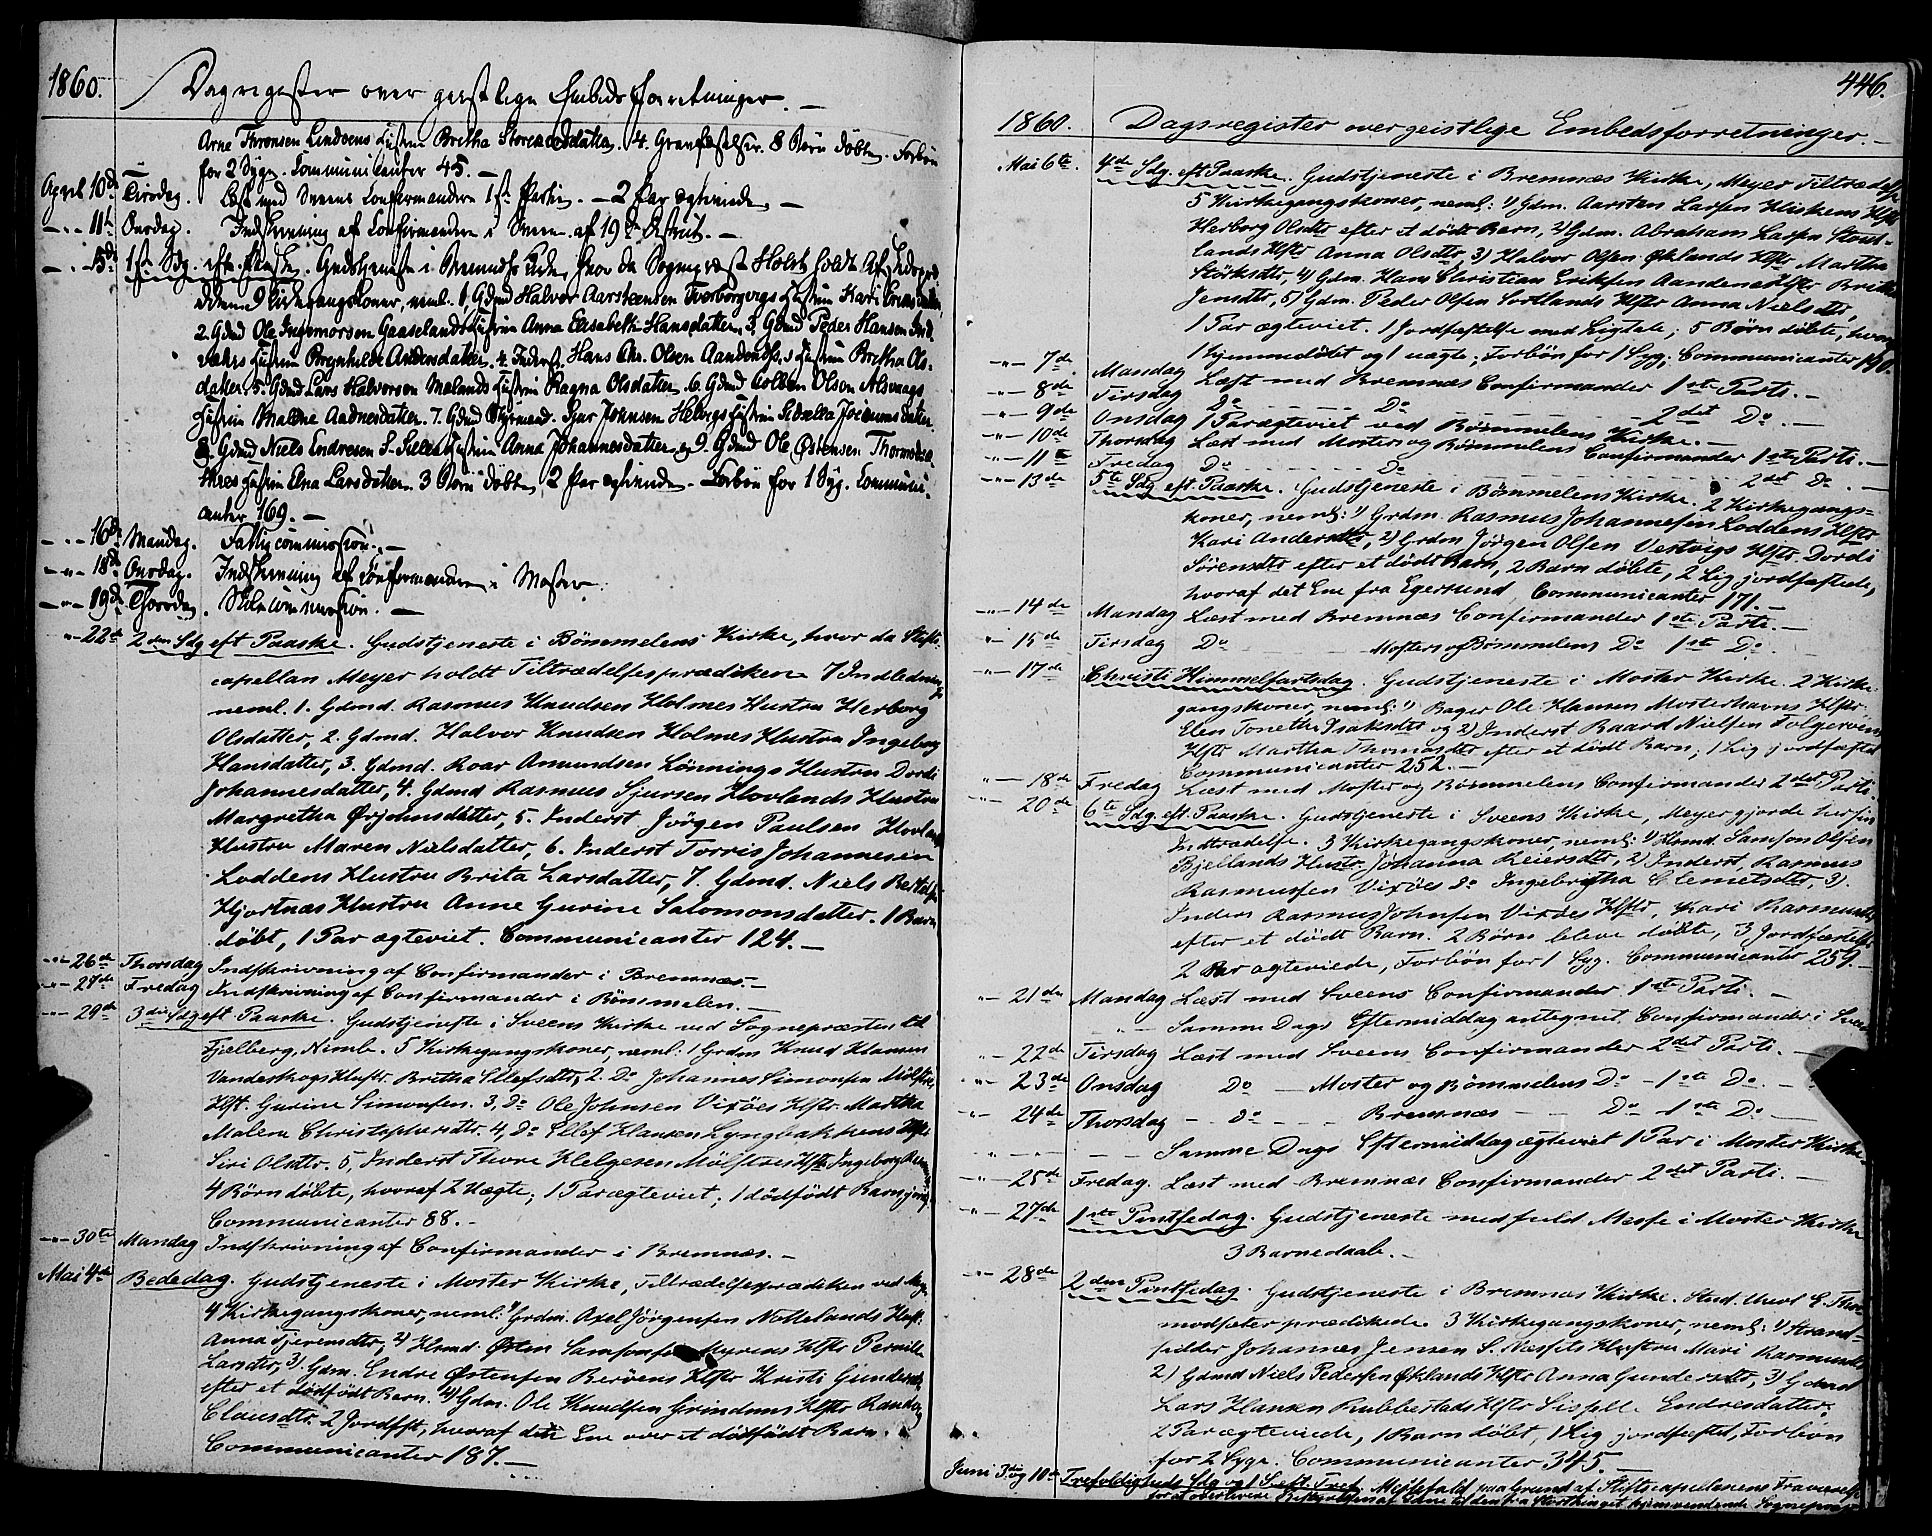 1860. Dagregister over geistlige Embedsforretninger. –
Arne Thronsen Lindöens Hustru Bretha Storeaasdatter. 4 Gravfæstelser. 8 Börn döbte. Forbön
for 2 Syge. Communicanter 45. –
April 10de Tirsdag. Læst med Sveens Confirmander 1ste Parti. – 2 Par ægteviede –
– " – 11te Onsdag. Indskrivning af Confirmander i Sveen af 19de District. –
– " – 15de 1ste Sdg. eft. Paaske. Gudstjeneste i Bremnæs Kirke, hvor da Sognepræst Holst holdt Afskedspræ-
diken. 9 Kirkegangskoner, neml. 1. Gdmd Halvor Aarstensen Tverborgvigs Hustru Kari
2. Gdmd Ole Ingemorsen Gaaselands Hustru Anna Elisabeth Hansdatter, 3. Gdmd Peder Hansen Ind-
værs Hustru Brynhilde Andersdatter. 4. Inderst Hans Chr. Olsen Aandenæss Hustru Bretha Ols-
datter. 5. Gdmd Lars Halvorsen Mælands Hustru Ragna Olsdatter. 6. Gdmd Colben Olsen Alsvaags
Hustru Malene Aadnesdatter. 7. Gdmd Styrmand Sjur Johnsen Helvigs Hustru
8. Gdmd Niels Endresen S. Hustru Anna Johannesdatter og 9. Gdmd Ole Østensen
Hustru Elna Larsdatter. 3 Börn döbte, 2 Par ægteviede. – Forbön for 1 Syg. Communi-
canter 169. –
– " – 16de Mandag. Fattigcommission. –
– " – 18de Onsdag. Indskrivning af Confirmander i Moster.
– " – 19de Thorsdag. Skolecommission. –
– " – 22de 2den Sdg eft Paaske. Gudstjeneste i Bömmelens Kirke, hvor da Stifts-
capellan Meyer holdt Tiltrædelsesprædiken. 7 Indledning
neml. 1. Gdmd. Rasmus Knudsen Holmes Hustru Herborg
Olsdatter, 2. Gdmd. Halvor Knudsen Holmes Hustru Ingeborg
Hansdatter, 3. Gdmd. Roar Amundsen Lönnings Hustru Dordi
Johannesdatter, 4. Gdmd Rasmus Sjursen Hovlands Hustru
Margretha Ørjohnsdatter, 5. Inderst Jörgen Paulsen Hovlands
Hustru Maren Nielsdatter, 6. Inderst Torris Johannesen
Loddens Hustru Brita Larsdatter, 7. Gdmd. Niels
Hjortnæs Hustru Anne Gurine Salomonsdatter. 1 Barn
döbt, 1 Par ægteviet. Communicanter 124. –
– " – 26de Thorsdag Indskrivning af Confirmander i Bremnæs. –
– " – 27de Fredag Indskrivning af Confirmander i Bömmelen. –
– " – 29de 3die Sdg eft Paaske. Gudstjeneste i Sveens Kirke ved Sognepræsten til
Fjelberg, Nimb. 5 Kirkegangskoner, neml: 1 Grdm Knud Hansen
Vandeskogs Hustr. Britha Ellefsdtr, 2. Do Johannes Simonsen
Hst. Gurine Simonsen. 3, Do Ole Johnsen Vixöes Hstr. Martha
Malene Christophersdtr. 4, Do Ellef Hansen Lyngbakkens Hst
Siri Olsdtr. 5, Inderst Thore Helgesen Mölstres Hstr Ingeborg
4 Börn döbte, hvoraf 2 Uægte; 1 Par ægteviet; 1 dödfödt Barn
Communicanter 88. –
– " – 30te Mandag Indskrivning af Confirmander i Bremnæs. –
Mai 4de Bededag. Gudstjeneste i Moster Kirke, Tiltrædelsesprædiken ved
4 Kirkegangskoner, neml: 1) Grdm. Axel Jörgensen Nottelands Hust.
Anna Tjerensdtr, 2) Hsmd. Østen Samsonsen Myrens Hstr Pernille
Larsdtr, 3) Gdm. Endre Østensen Bervens Hstr Kristi Gundersdtr
efter et dödfödt Barn. 4) Gdm. Ole Knudsen Grindems Hstr Randi
Clausdtr. 2 Jordfst, hvoraf det Ene over et dödfödt Barn.
Communicanter 187. –
446.
1860. Dagsregister over geistlige Embedsforretninger. –
Mai 6te. 4de Sdg. eft Paaske. Gudstjeneste i Bremnæs Kirke, Meyer Tiltrædelse
5 Kirkegangskoner, neml: 1) Gdm. Aarsten Larsen Hiskens Hstr
Herborg Olsdtr efter et dödt Barn, 2) Gdm. Abraham Larsen
lands Hstr Anna Olsdtr, 3) Halvor Olsen Øklands Hstr Martha
Störksdtr, 4) Gdm. Hans Christian Eriksen Aandenæs Hstr Britha
Jensdtr, 5) Gdm. Peder Olsen Sortlands Hstr Anna Nielsdtr,
1 Par ægteviet. 1 Jordfæstelse med Ligtale; 5 Börn döbte, hvoraf
1 hjemmedöbt og 1 uægte; Forbön for 1 Syg; Communicanter 196.
– " – 7de Mandag Læst med Bremnæs Confirmander 1ste Parti. –
– " – 8de Tirsdag Do – – Do – – 2det Do. –
– " – 9de Onsdag 1 Par ægteviet ved Bömmelens Kirke. –
– " – 10de Thorsdag Læst med Mosters og Bömmelens Confirmander 1ste Parti. –
– " – 11te Fredag Do – – Do – – 2det Do. –
– " – 13de 5te Sdg. eft. Paaske. Gudstjeneste i Bömmelens Kirke. 2 Kirkegangs-
koner, neml: 1) Grdm. Rasmus Johannesen Loddens Hstr
Kari Andersdtr, 2) Grdm Jörgen Olsen Vestvigs Hstr. Dordi
Sörensdtr efter et dödt Barn, 2 Barn döbte, 2 Lig jordfæstede,
hvoraf det Ene fra Egersund, Communicanter 171. –
– " – 14de Mandag Læst med Bremnæs Confirmander 1ste Parti. –
– " – 15de Tirsdag Do Mosters og Bömmelens Do 1ste Do.
– " – 17de Christi Himmelfartsdag. Gudstjeneste i Moster Kirke. 2 Kirke-
gangskoner, neml: 1) Bager Ole Hansen Mosterhavns Hstr.
Elen Tonetha Isaksdtr og 2) Inderst Baard Nielsen Folgeröens
Hstr Martha Thomasdtr efter et dödt Barn; 1 Lig jordfæstet
Communicanter 252. –
" – 18de Fredag Læst med Moster og Bömmelens Confirmander 2det Parti.
" – 20de 6te Sdg. eft. Paaske. Gudstjeneste i Sveens Kirke, Meyer gjorde her sin
Indtrædelse. 3 Kirkegangskoner, neml: 1) Hsmd. Samson Olsen
Bjellands Hustr. Johanna Reiersdtr, 2) Inderst, Rasmus
Rasmussen Vixöes Do Ingebrigtha Clemetsdtr, 3)
Inders Rasmus Johnsen Vixöes Hstr, Kari Rasmusdtr
efter et dödt Barn. 2 Börn bleve döbte, 3 Jordfæstelse
2 Par ægteviede, Forbön for 1 Syg. Communicanter 259. –
" – 21de Mandag Læst med Sveens Confirmander 1ste Parti. –
" – Samme Dags Eftermiddag antegnet Confirmander i Sveen
" – 22de Tirsdag Læst med Sveens Confirmander 2det Parti. –
– " – 23de Onsdag Do – Moster og Bömmelens Do – 1ste Do. –
– " – 24de Thorsdag – Do – – Bremnæs – – Do – 1ste Do –
– " – – Samme Dags Eftermiddag ægteviet 1 Par i Moster Kirke
– " – 25de Fredag. Læst med Bremnæs Confirmander 2det Parti. –
– " – 27de 1ste Pintsedag. Gudstjeneste med fuld Messe i Moster Kirke
3 Barnedaab. –
– " – 28de 2den Pintsedag. Gudstjeneste i Bremnæs Kirke. Stud. theol E.
prædikede. 3 Kirkegangskoner, neml: 1) Strand-
sidder Johannes Jensen S. Næssets Hustru Mari Rasmusdtr
2) Gdmd Niels Pedersen Øklands Hstr Anna Gundersdtr, 3) Gdmd
Lars Hansen Rubbestads Hstr Sisselle Endresdatter;
2 Par ægteviede, 1 Barn döbt, 1 Lig jordfæstet, Forbön
for 2 Syge. Communicanter 345. –
Juni 3die og 10de Trefoldigheds Sdg og 1 S. eft. Tref. Messefald paa Grund af Stiftscapellanens Fraværelse
for at overlevere til den fra Storthinget hjemvendende Sognepræst